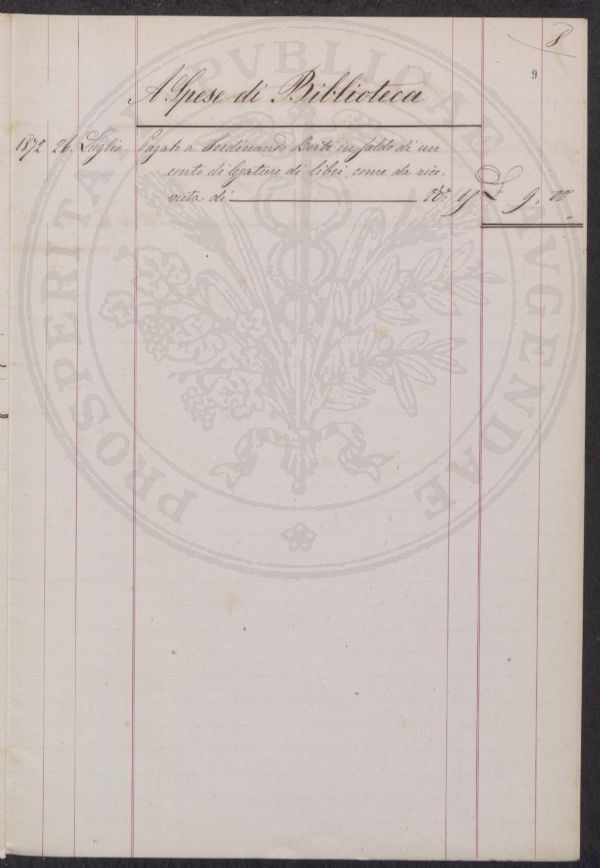 8
9
A Spese di Biblioteca
1872 26. Luglio Pagate a Ferdinando Berti in saldo di un
conto di legature di libri, come da rice-
vuta di N.° £ 9. 00
PROSPERITATI PVBLICAE AVGENDAE